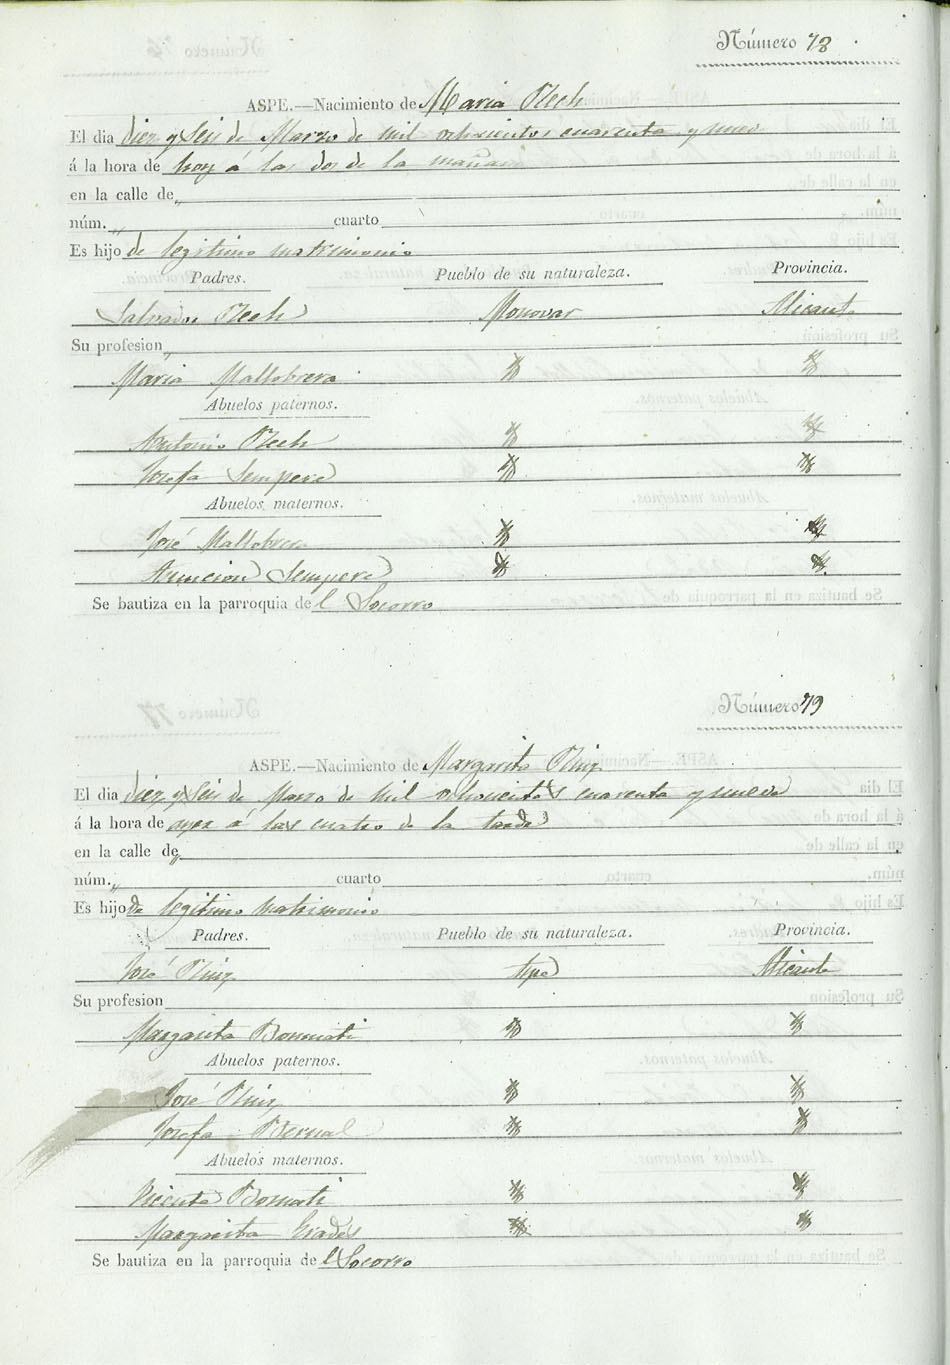 Número 78
ASPE.—Nacimiento de Maria Rech
El dia diez y Seis de Marzo de mil ochocientos cuarenta y nueve
á la hora de hoy á las dos de la mañana
en la calle de „
núm. „ cuarto
Es hijo de legitimo matrimonio
Padres. Pueblo de su naturaleza. Provincia.
Salvador Rech Monovar Alicante
Su profesion
Maria Mallobrera
Abuelos paternos.
Antonio Rech
Josefa Sempere
Abuelos maternos.
José Mallobrera
Asuncion Sempere
Se bautiza en la parroquia de l Socorro
Número 79
ASPE.—Nacimiento de Margarita Ruiz
El dia diez y Seis de Marzo de mil ochocientos cuarenta y nueve
á la hora de ayer á las cuatro de la tarde
en la calle de „
núm. „ cuarto
Es hijo de legitimo matrimonio
Padres. Pueblo de su naturaleza. Provincia.
José Ruiz Aspe Alicante
Su profesion
Margarita Bonmati
Abuelos paternos.
José Ruiz
Josefa Bernal
Abuelos maternos.
Vicente Bonmati
Margarita
Se bautiza en la parroquia de l Socorro